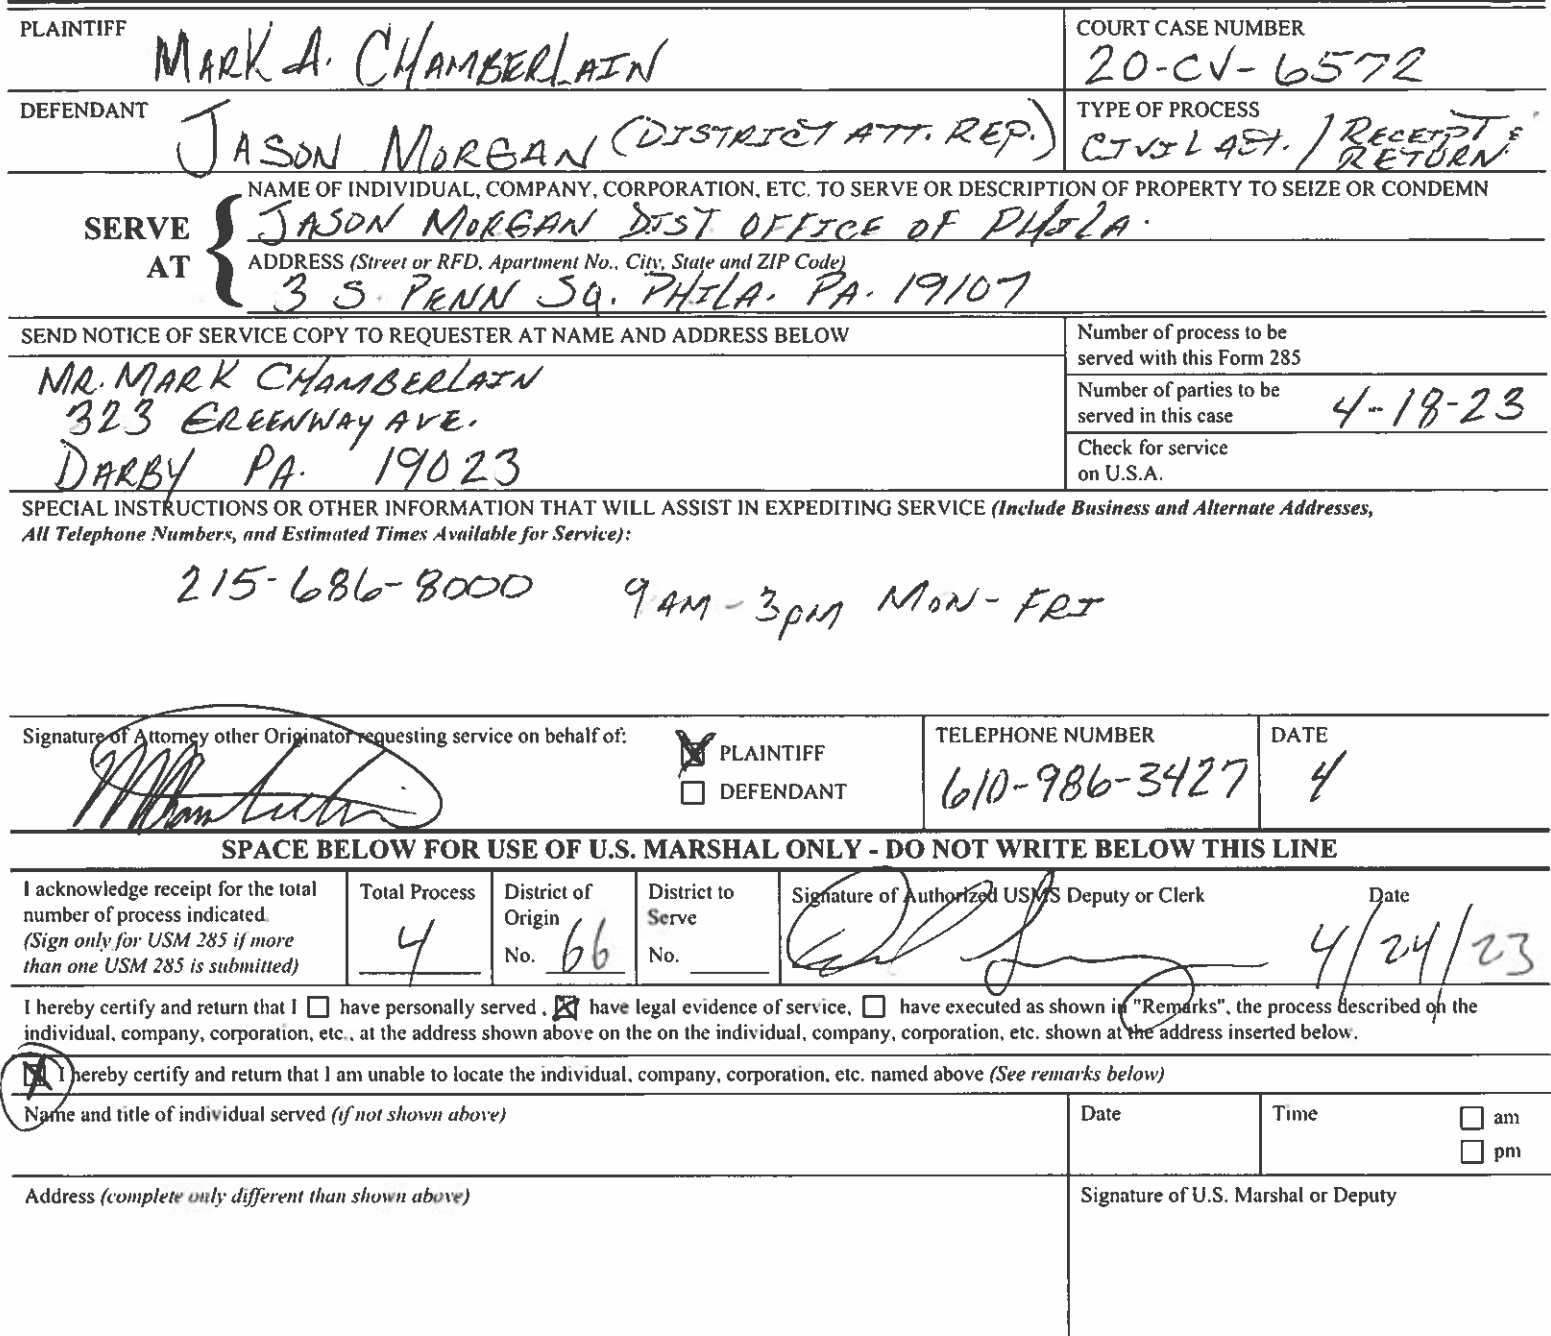 PLAINTIFF MARK A. CHAMBERLAIN
COURT CASE NUMBER
20-CV-6572
DEFENDANT JASON MORGAN (DISTRICT ATT. REP.)
TYPE OF PROCESS
CIVIL ACT. / RECEIPT & RETURN
NAME OF INDIVIDUAL, COMPANY, CORPORATION, ETC. TO SERVE OR DESCRIPTION OF PROPERTY TO SEIZE OR CONDEMN
SERVE AT
JASON MORGAN DIST OFFICE OF PHILA.
ADDRESS (Street or RFD, Apartment No., City, State and ZIP Code)
3 S. PENN SQ. PHILA. PA. 19107
SEND NOTICE OF SERVICE COPY TO REQUESTER AT NAME AND ADDRESS BELOW
MR. MARK CHAMBERLAIN
323 GREENWAY AVE.
DARBY PA. 19023
Number of process to be
served with this Form 285
Number of parties to be
served in this case 4-18-23
Check for service
on U.S.A.
SPECIAL INSTRUCTIONS OR OTHER INFORMATION THAT WILL ASSIST IN EXPEDITING SERVICE (Include Business and Alternate Addresses,
All Telephone Numbers, and Estimated Times Available for Service):
215-686-8000 9 AM - 3 PM MON - FRI
Signature of Attorney other Originator requesting service on behalf of:
PLAINTIFF
DEFENDANT
TELEPHONE NUMBER
610-986-3427
DATE
4
SPACE BELOW FOR USE OF U.S. MARSHAL ONLY - DO NOT WRITE BELOW THIS LINE
I acknowledge receipt for the total
number of process indicated.
(Sign only for USM 285 if more
than one USM 285 is submitted)
Total Process
4
District of
Origin
No. 66
District to
Serve
No.
Signature of Authorized USMS Deputy or Clerk
Date
4/24/23
I hereby certify and return that I have personally served , have legal evidence of service, have executed as shown in "Remarks", the process described on the
individual, company, corporation, etc., at the address shown above on the on the individual, company, corporation, etc. shown at the address inserted below.
I hereby certify and return that I am unable to locate the individual, company, corporation, etc. named above (See remarks below)
Name and title of individual served (if not shown above)
Date
Time
am
pm
Address (complete only different than shown above)
Signature of U.S. Marshal or Deputy